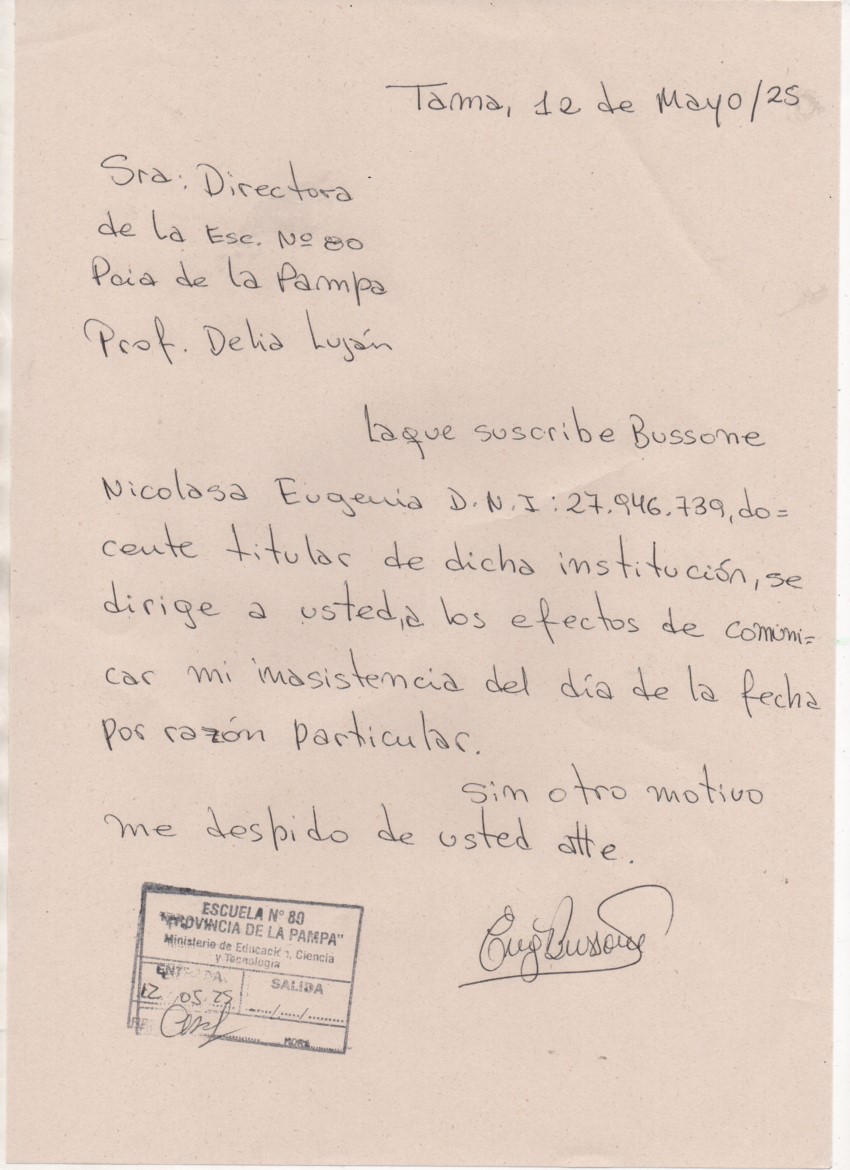 Tama, 12 de Mayo/25
Sra: Directora
de la Esc. Nº 80
Pcia de la Pampa
Prof. Delia Luján
La que suscribe Bussone
Nicolasa Eugenia D.N.I: 27.946.739, do=
cente titular de dicha institución, se
dirige a usted, a los efectos de comuni=
car mi inasistencia del día de la fecha
por razón particular.
Sin otro motivo
me despido de usted atte.
Eug Bussone
ESCUELA N° 80
"PROVINCIA DE LA PAMPA"
Ministerio de Educación, Ciencia
y Tecnología
ENTRADA
SALIDA
12 05 25